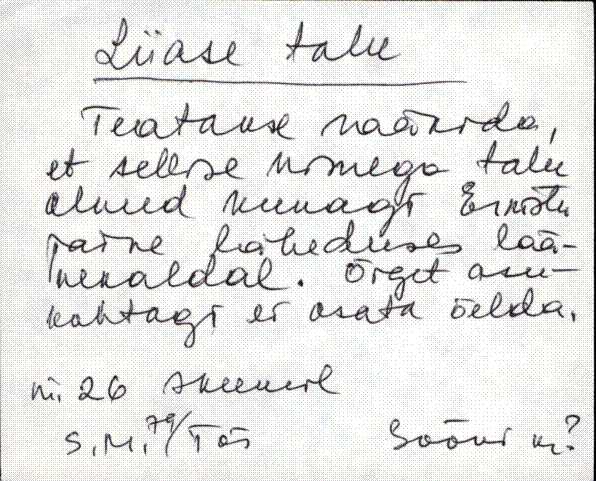 Liiase talu
Teatakse rääkida,
et sellise nimega talu
olnud kunagi Ermistu
järve läheduses lää-
nekaldal. Õiget asu-
kohtagi ei osata öelda.
nr. 26 skeemil
S.M. 79/Tõs